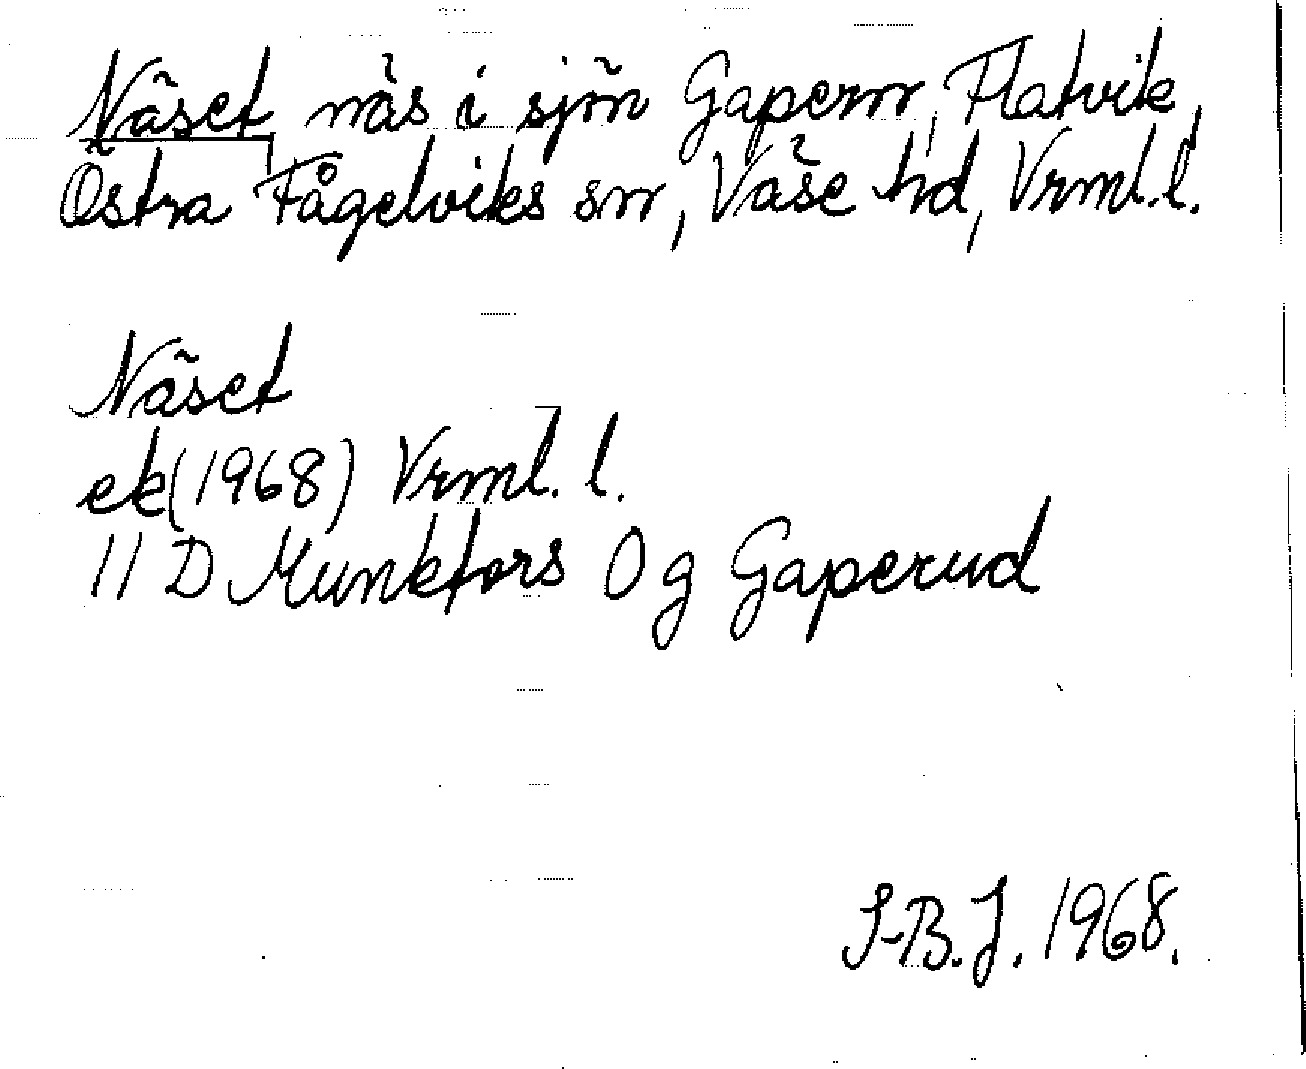 Näset, näs i sjön Gapern, Flatvik,
Östra Fågelviks sn, Väse hd, Vrml.l.
Näset
ek(1968) Vrml. l.
11 D Munkfors 0 g Gaperud
I-B.J. 1968.